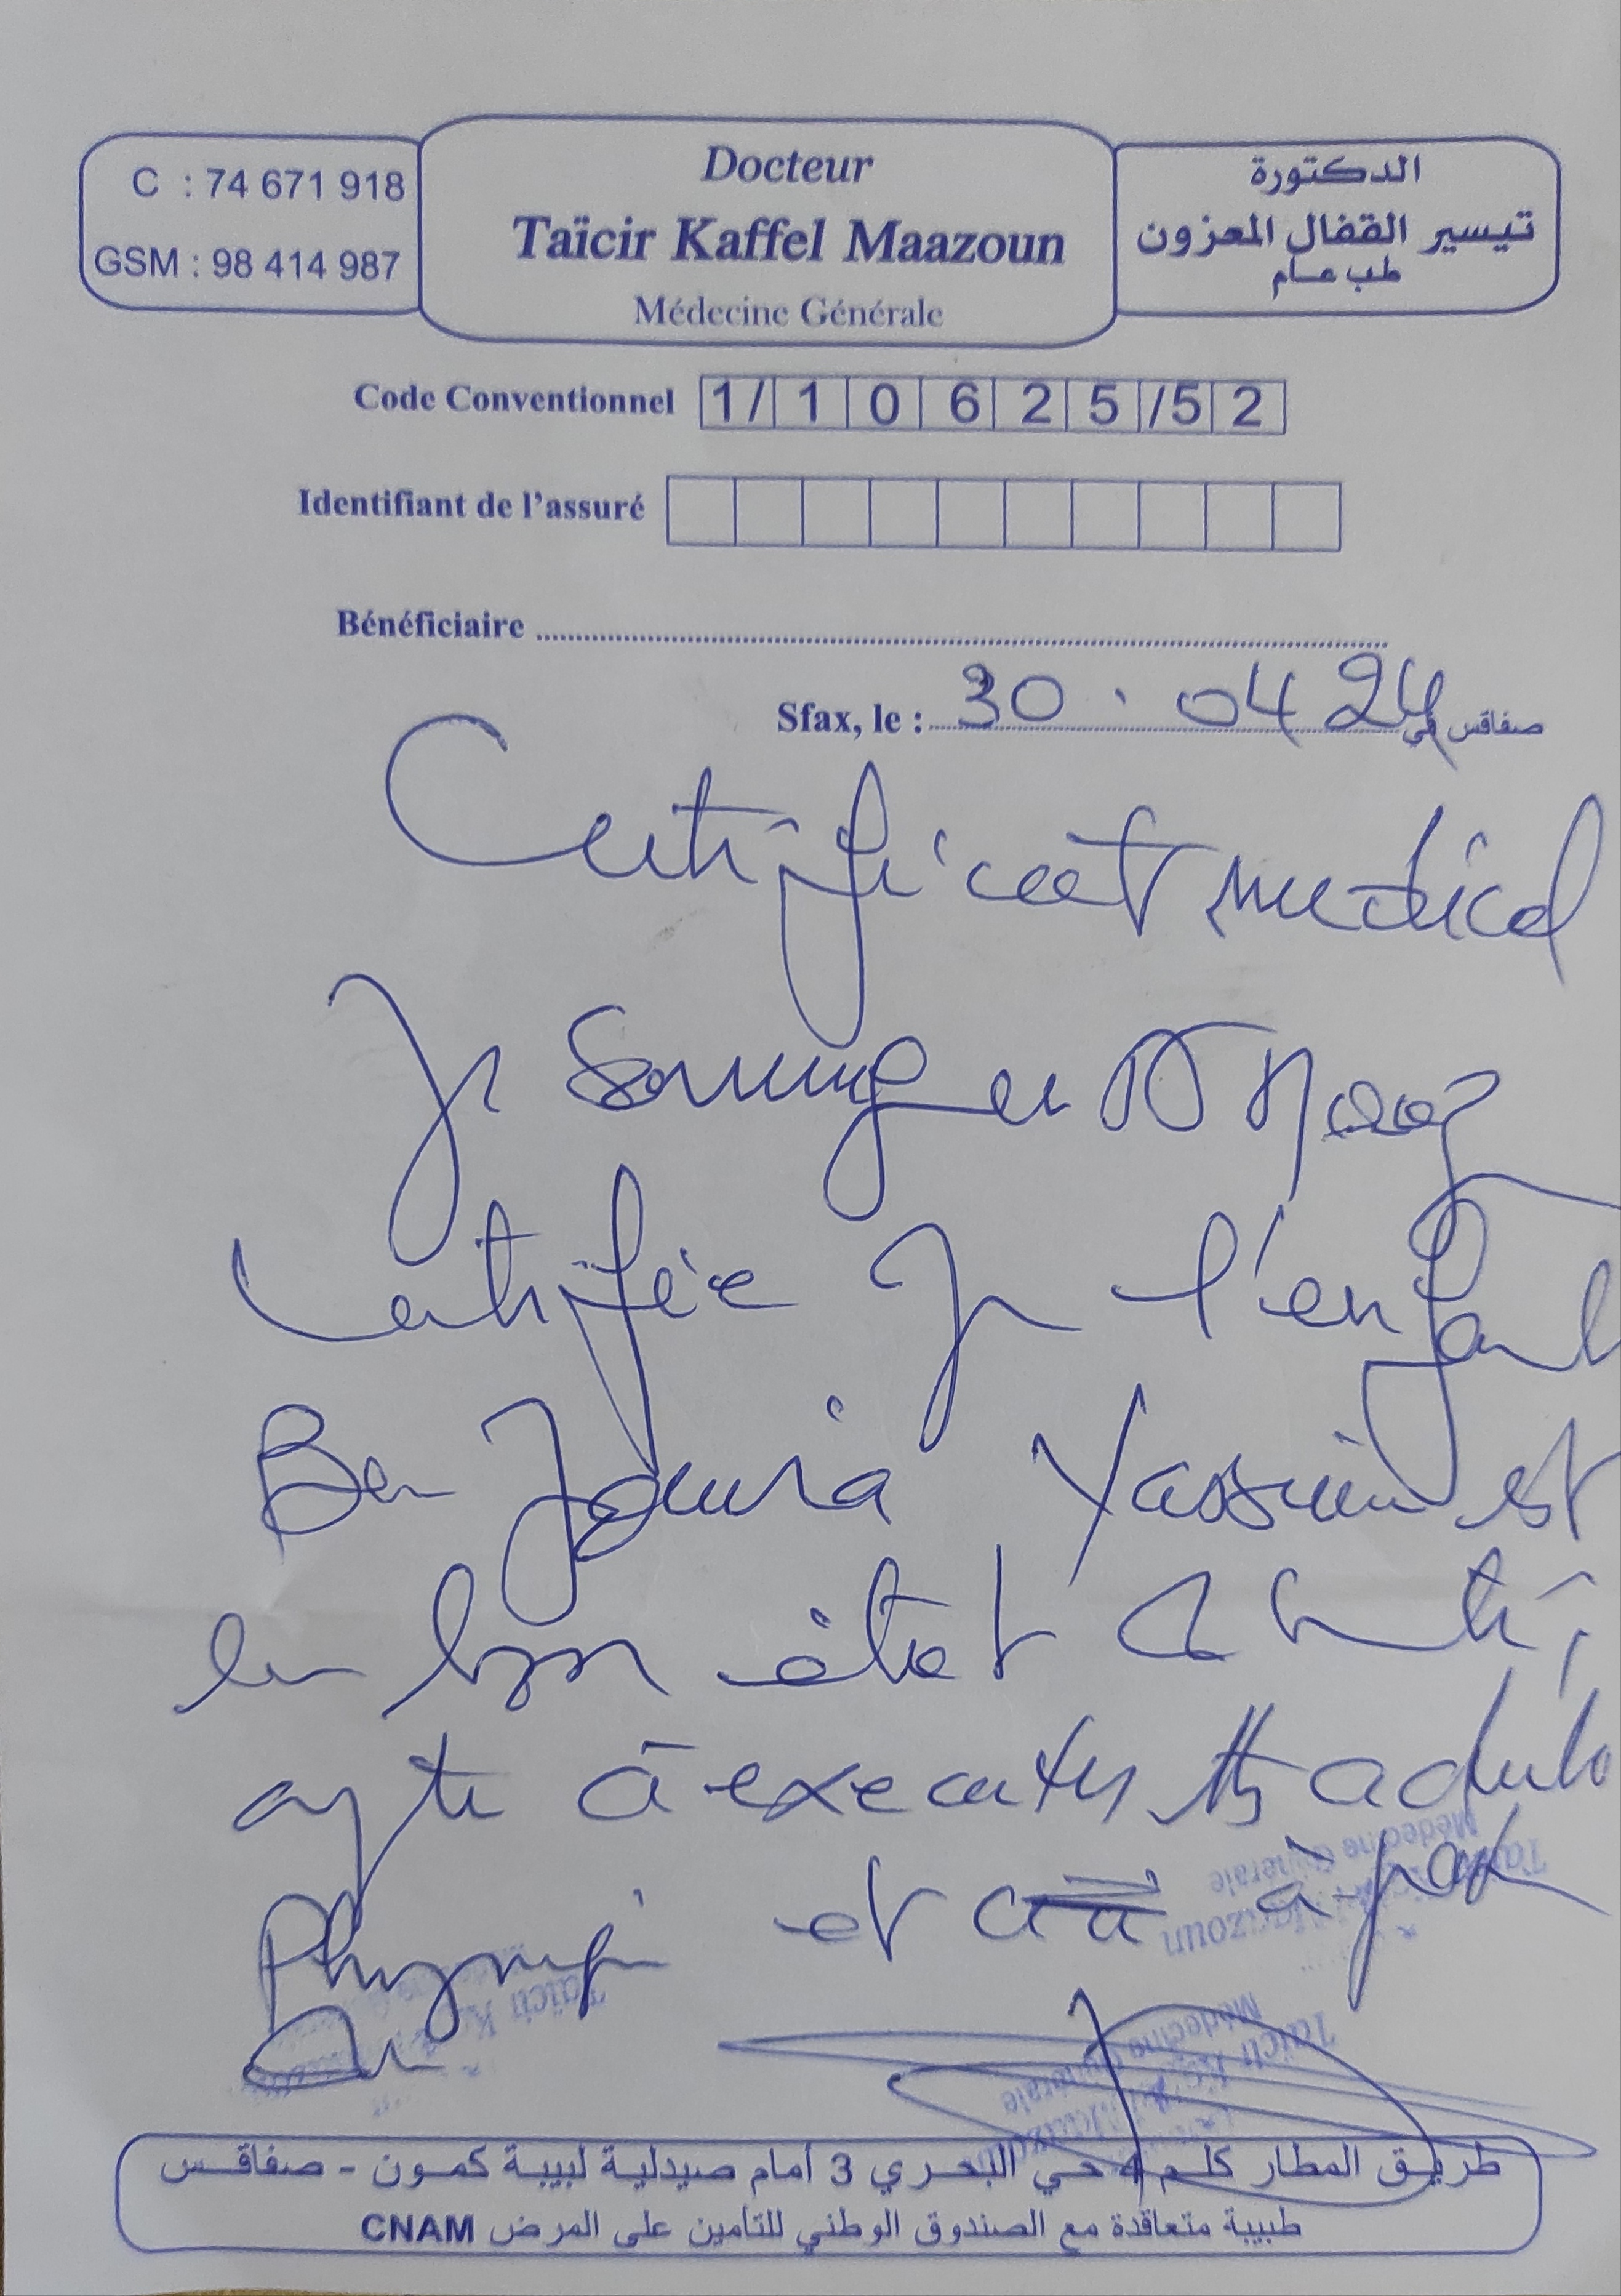 C : 74 671 918
GSM : 98 414 987
Docteur
Taïcir Kaffel Maazoun
Médecine Générale
الدكتورة
تيسير القفال المعزون
طب عام
Code Conventionnel 1/10625/52
Identifiant de l'assuré
Bénéficiaire
Sfax, le : 30 . 04 24 صفاقس في
Certificat medical
Je Soussigner Dr
Certifiée que l'enfant
Ben Jemia Yassin est
en bon état
apte à executer
et à
Taïcir
Médecine Générale
Maazoun
Taïcir K
Taïcir
Médecine Générale
Maazoun
طريق المطار كلم 4 حي البحري 3 أمام صيدلية لبيبة كمون - صفاقس
طبيبة متعاقدة مع الصندوق الوطني للتأمين على المرض CNAM